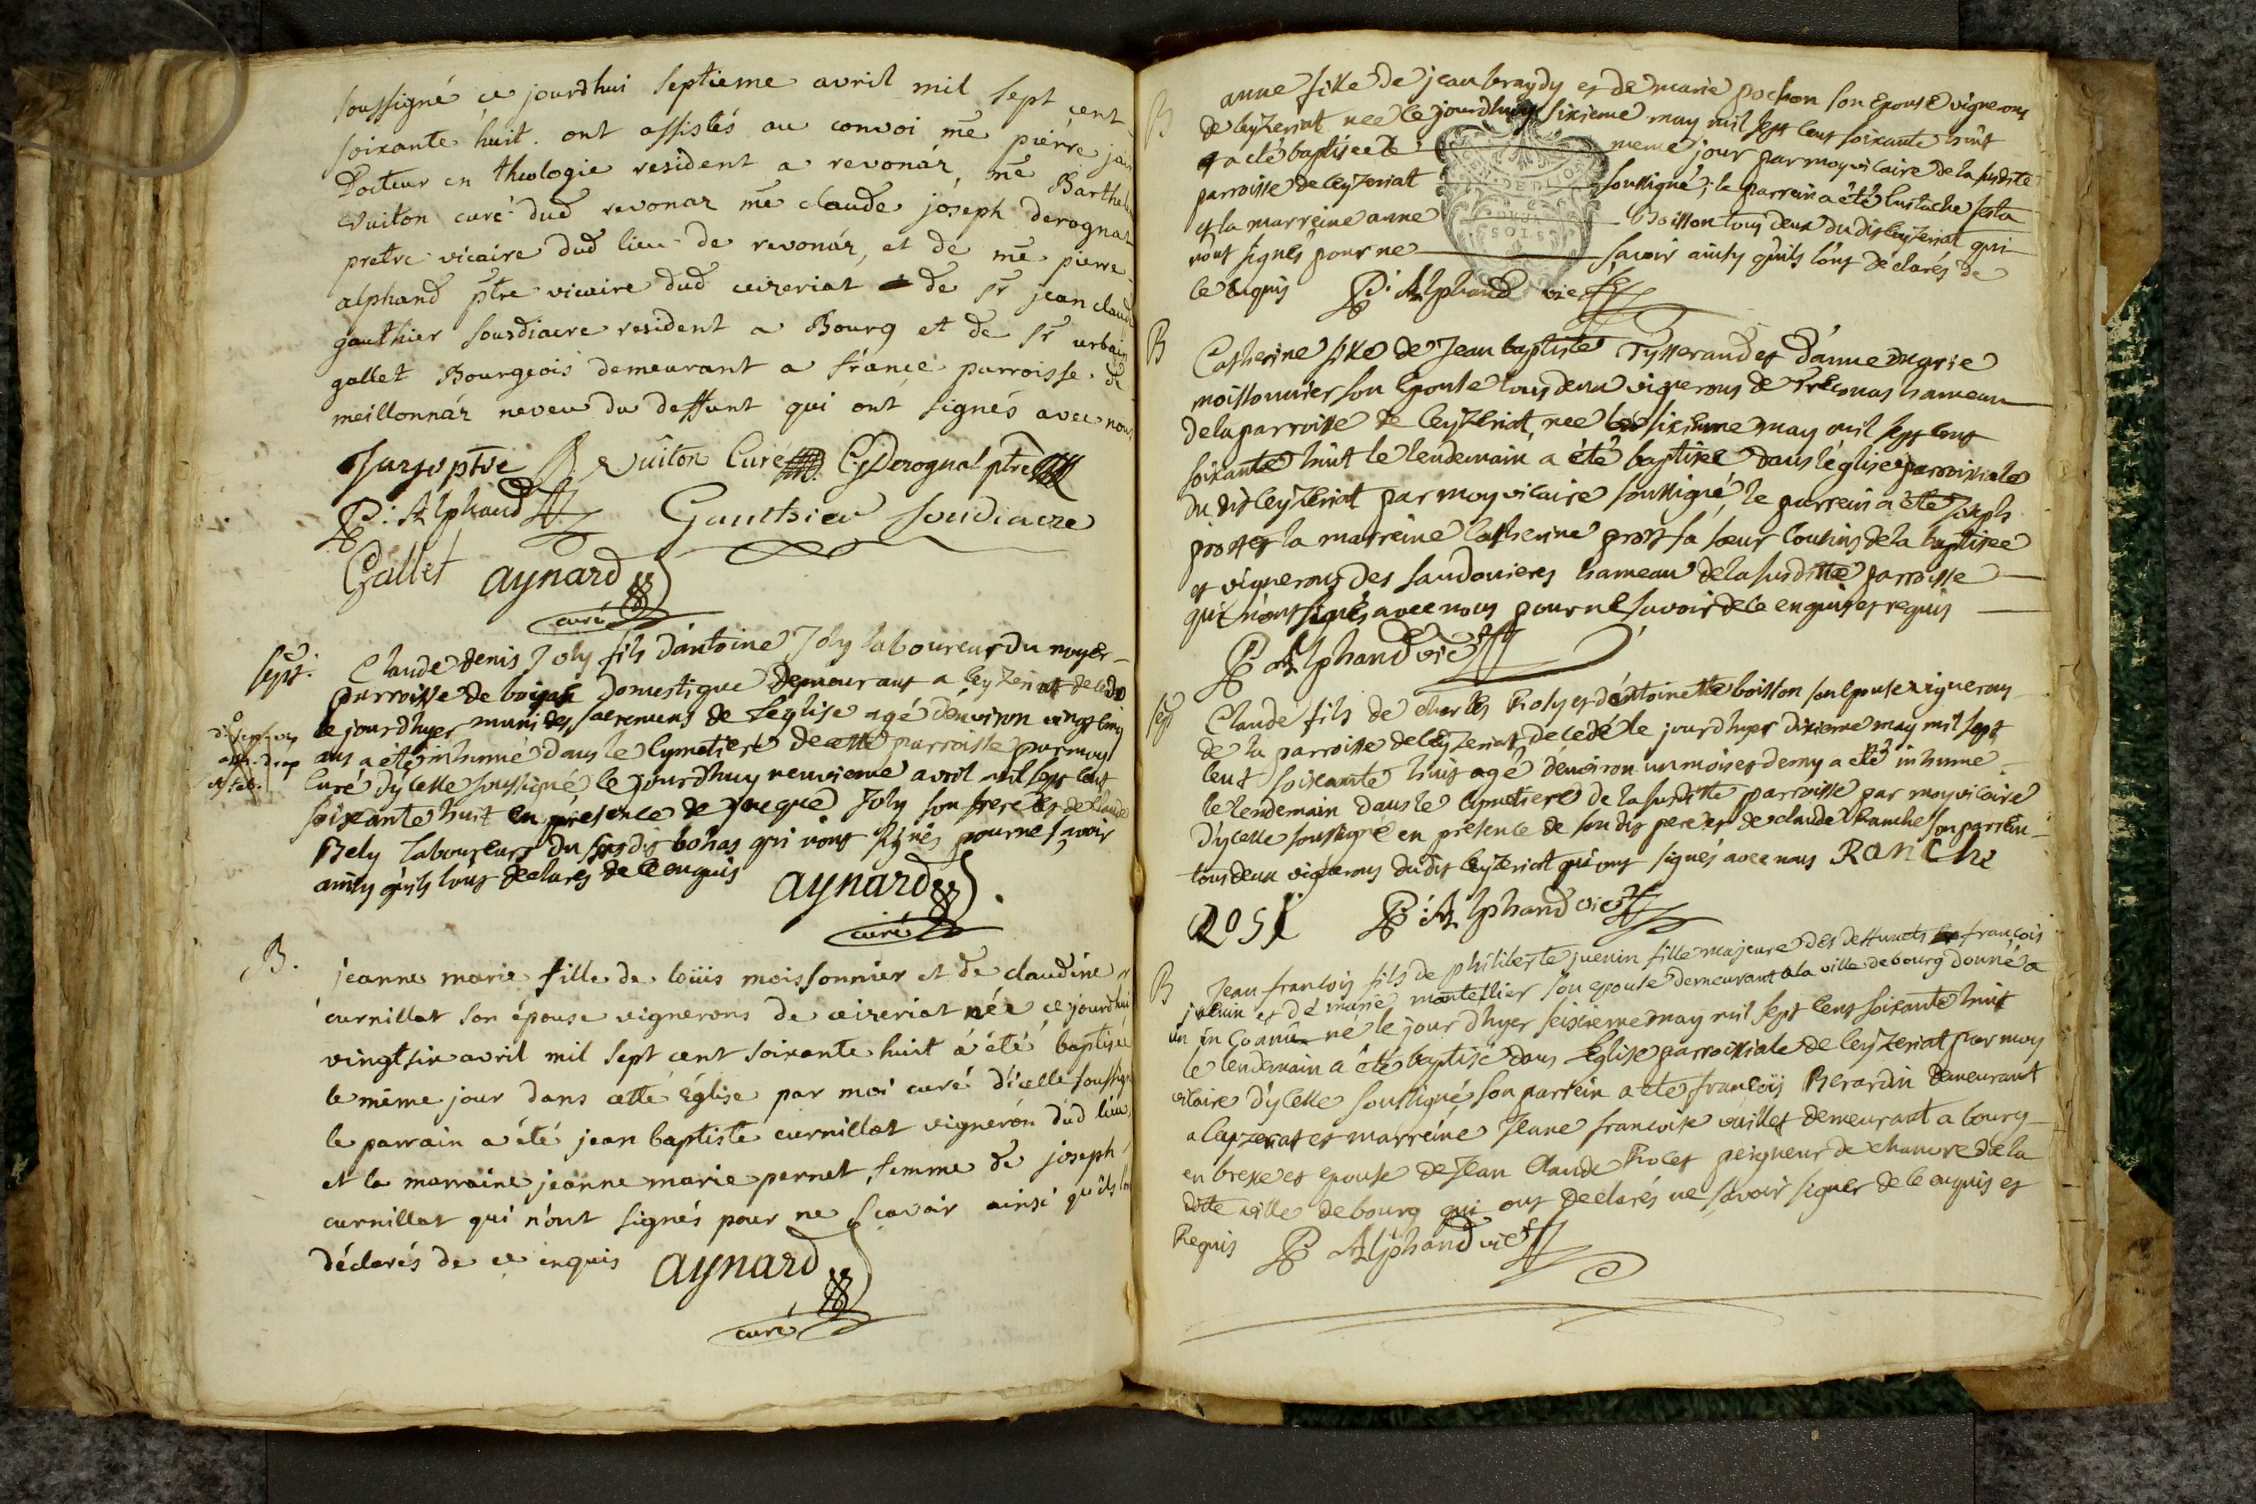 soussigné ce jourdhui septieme avril mil sept cent
soixante huit. ont assistés au convoi mᵉ pierre
Docteur en theologie resident a revonaz, mᵉ Barthele
Vuiton curé dud revonaz mᵉ claude joseph derognat
pretre vicaire dud lieu de revonaz, et de mᵉ pierre
alphand ptre vicaire dud ceizeriat de Sr jean claude
gauthier sousdiacre resident a Bourg et de Sr urbain
gallet Bourgeois demeurant a france parroisse de
meillonnaz neveu du deffunt qui ont signés avec nous
Vuiton Curé CJ Derognat ptre
P: Alphand Gauthier soudiacre
Gallet aynard
curé
sept: Claude denis Joly fils d'antoine Joly laboureur du noyer
parroisse de domestique demeurant a Ceyzeriat decedé
le jourdhyer muni des sacremens de l'eglise agé d'environ vingt cinq
ans a été inhumé dans le cymetiere de cette parroisse par moy
Curé d'ycelle soussigné le jourdhuy neuvieme avril mil sept cent
soixante huit en présence de Joly son frere et de claude
Bely laboureurs du susdit bohas qui n'ont signés pour ne sçavoir
ainsy qu'ils l'ont declarés de ce enquis
aynard
curé
B. jeanne marie fille de loüis moissonnier et de claudine
curnillat son épouse vignerons de ceizeriat née ce jourdhui
vingtsix avril mil sept cent soixante huit a été baptisée
le même jour dans cette Église par moi curé d'icelle soussigné
le parrain a été jean baptiste curnillat vigneron dud lieu,
et la marraine jeanne marie pernet, femme de joseph
curnillat qui n'ont signés pour ne sçavoir ainsi qu'ils l'on
déclarés de ce enquis aynard
curé
B anne fille de jean braydy et de marie pochon son Epouse vignerons
de Ceyzeriat née le jourdhuy sixieme may mil sept cent soixante huit
et a eté baptisée le même jour par moy vicaire de la susdite
parroisse de Ceyzeriat soussigné; le parrein a été Eustache
et la marreine anne Boisson tous deux du dit Ceyzeriat qui
n'ont signés pour ne savoir ainsy qu'ils l'ont déclarés de
ce enquis P: Alphand vic
B Catherine fille de Jean baptiste Tysserand et d'anne marie
moissonnier son Epouse tous deux vignerons de Treconas hameau
de la parroisse de Ceyzeriat, née le sixieme may mil sept cent
soixante huit le lendemain a été baptisée dans l'église parroissiale
du dit Ceyzeriat par moy vicaire soussigné, le parrein a été Joseph
prost et la marreine Catherine prost sa sœur cousins de la baptisée
et vignerons des Saudonieres hameau de la susditte parroisse
qui n'ont signés avec nous pour ne savoir de ce enquis et requis
P Alphand vic
sep Claude fils de charles Roly et d'antoinette boisson son epouse vignerons
de la parroisse de Ceyzeriat, decedé le jourdhyer dixieme may mil sept
cent soixante huit agé d'environ un mois et demy a été inhumé
le lendemain dans le cymetiere de la susditte parroisse par moy vicaire
d'ycelle soussigné en présence de son dit pere et de claude blanche son parrein
tous deux vignerons du dit Ceyzeriat qui ont signés avec nous
P: Alphand vic
B Jean francois fils de philiberte juenin fille majeure des deffuncts francois
juenin et de marie montellier son epouse demeurant a la ville de bourg donné a
un in Connu né le jour d'hyer seixieme may mil sept cent soixante huit
le lendemain a été baptisé dans l'Eglise parroissiale de Ceyzeriat par moy
vicaire d'ycelle soussigné, son parrein a été francois Berardin demeurant
a Ceyzeriat et marreine Jeane francoise vuillet demeurant a bourg
en brexe et epouse de Jean Claude peigneur de chanvre de la
ditte ville de bourg qui ont declarés ne savoir signer de ce enquis et
Requis P Alphand vic